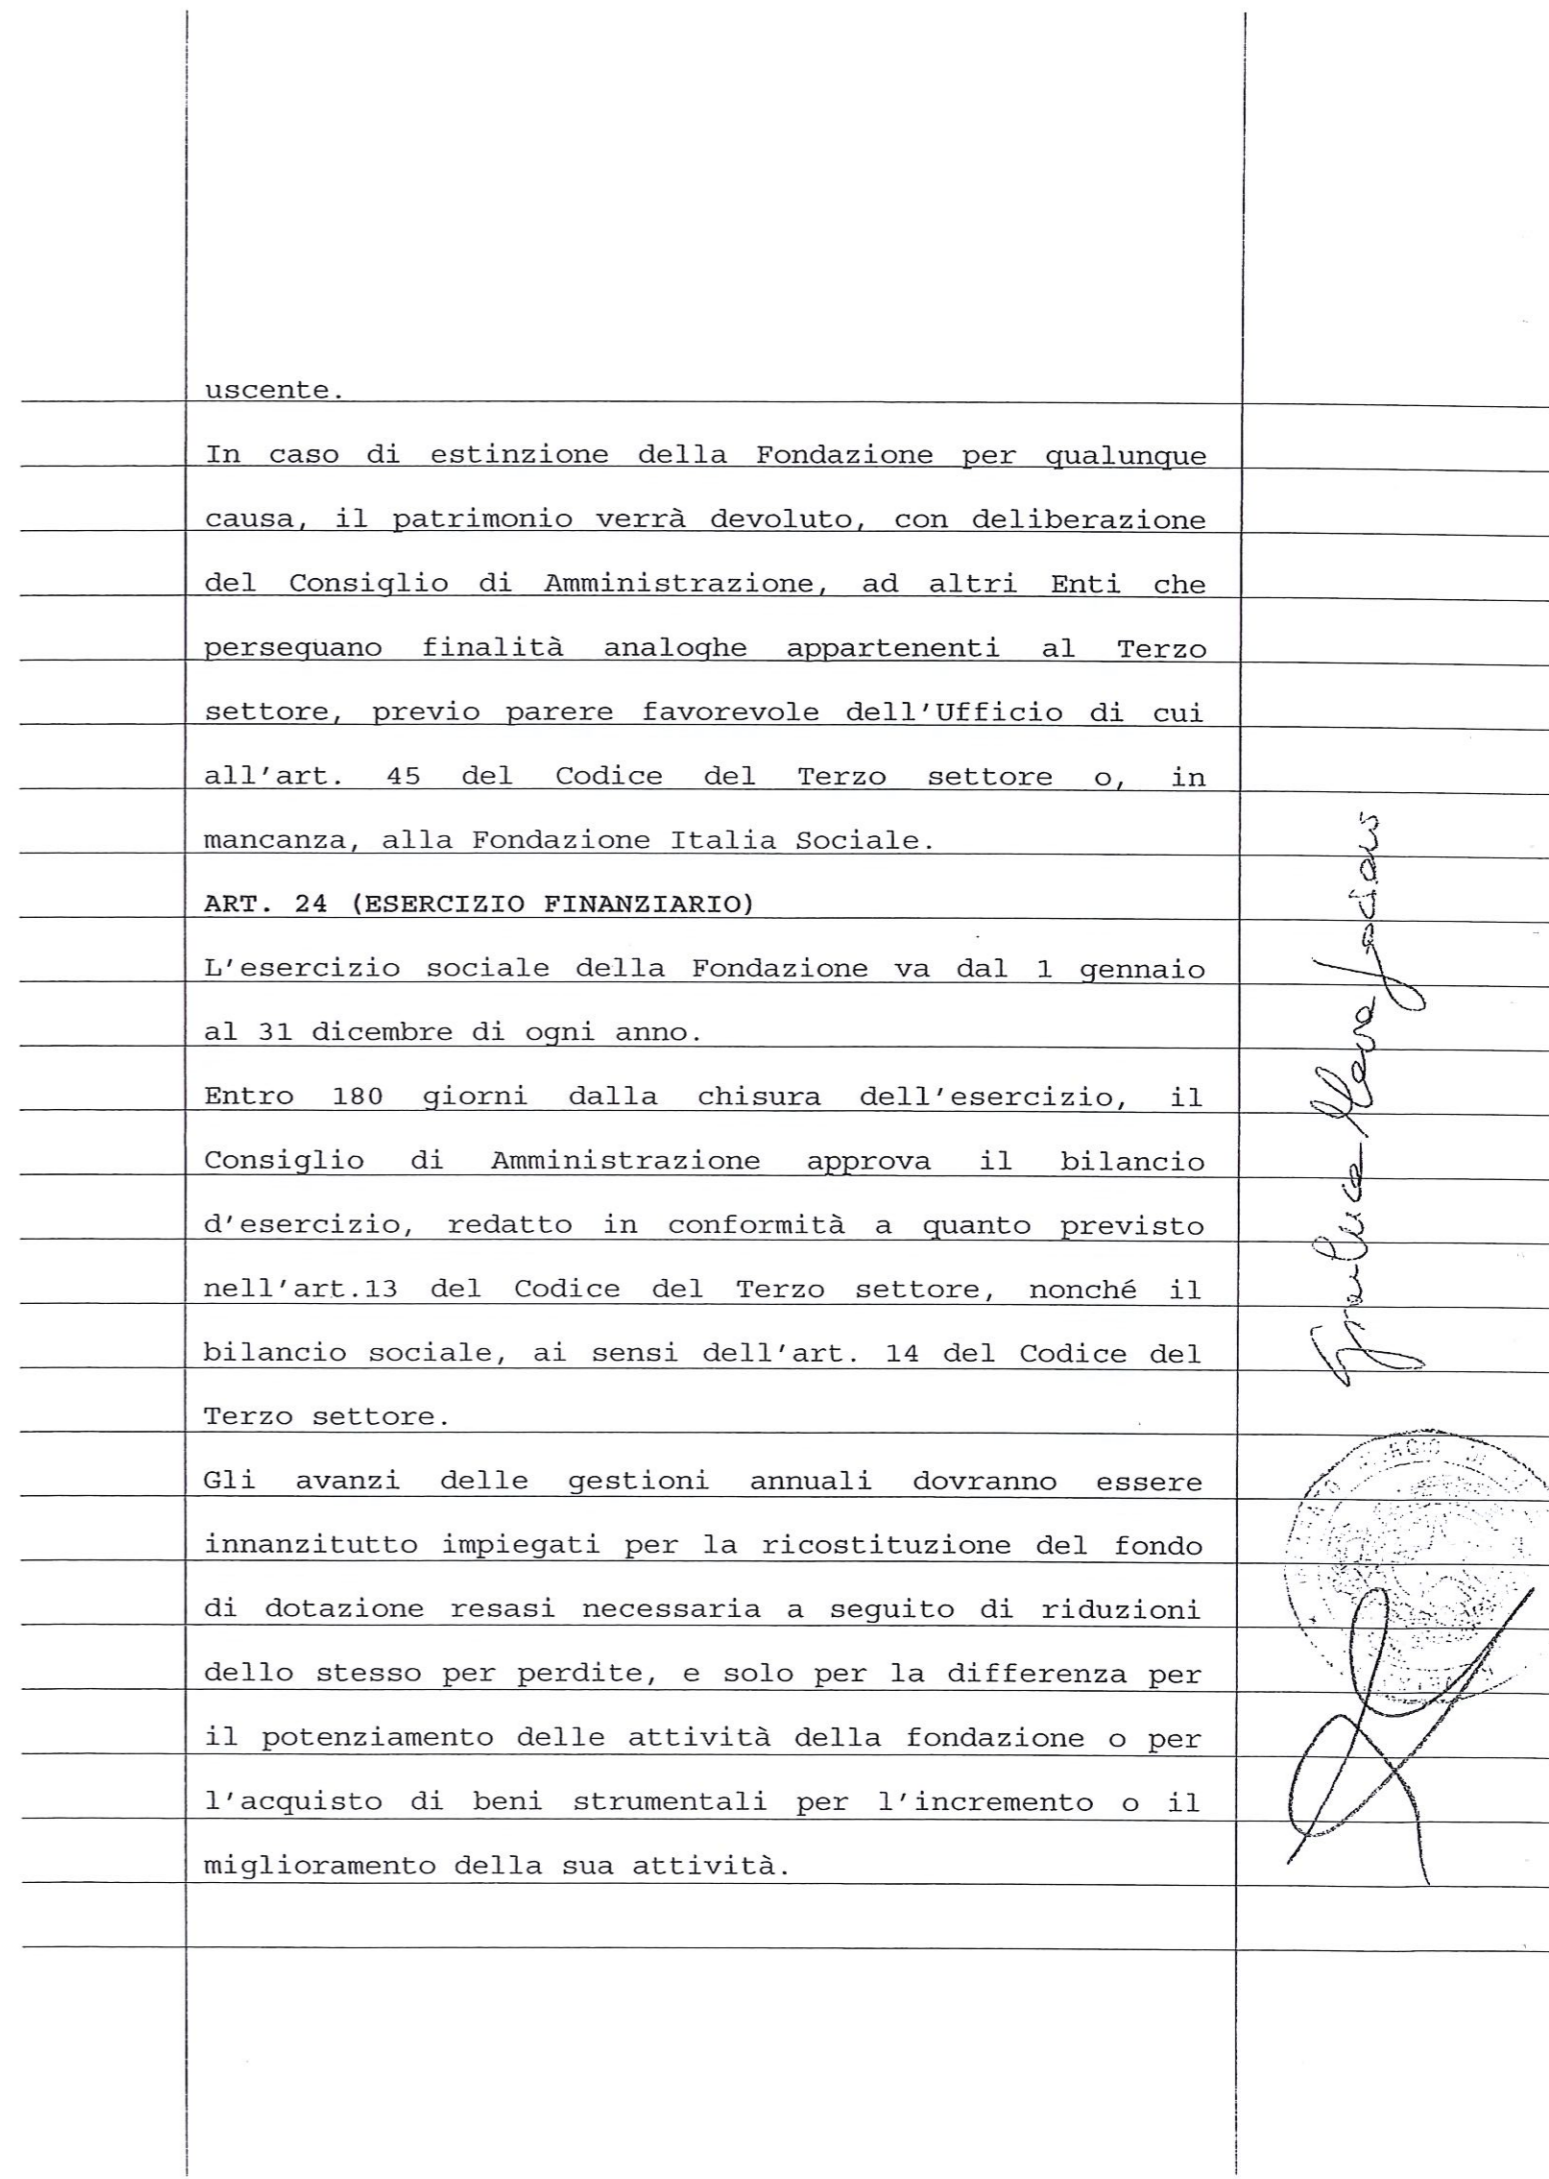 uscente.
In caso di estinzione della Fondazione per qualunque
causa, il patrimonio verrà devoluto, con deliberazione
del Consiglio di Amministrazione, ad altri Enti che
perseguano finalità analoghe appartenenti al Terzo
settore, previo parere favorevole dell'Ufficio di cui
all'art. 45 del Codice del Terzo settore o, in
mancanza, alla Fondazione Italia Sociale.
ART. 24 (ESERCIZIO FINANZIARIO)
L'esercizio sociale della Fondazione va dal 1 gennaio
al 31 dicembre di ogni anno.
Entro 180 giorni dalla chisura dell'esercizio, il
Consiglio di Amministrazione approva il bilancio
d'esercizio, redatto in conformità a quanto previsto
nell'art.13 del Codice del Terzo settore, nonché il
bilancio sociale, ai sensi dell'art. 14 del Codice del
Terzo settore.
Gli avanzi delle gestioni annuali dovranno essere
innanzitutto impiegati per la ricostituzione del fondo
di dotazione resasi necessaria a seguito di riduzioni
dello stesso per perdite, e solo per la differenza per
il potenziamento delle attività della fondazione o per
l'acquisto di beni strumentali per l'incremento o il
miglioramento della sua attività.